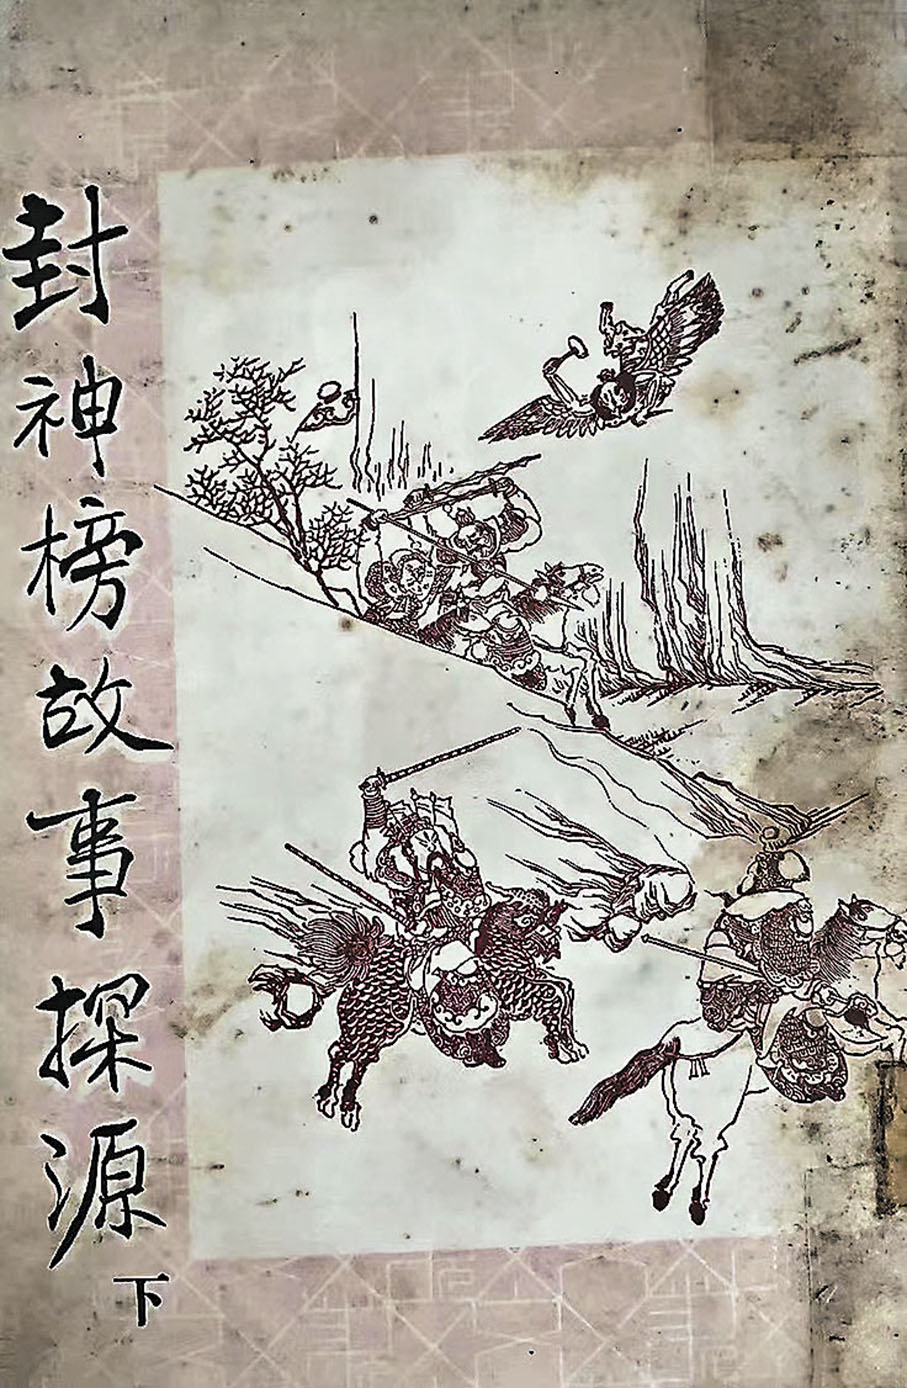 封神榜故事探源
下